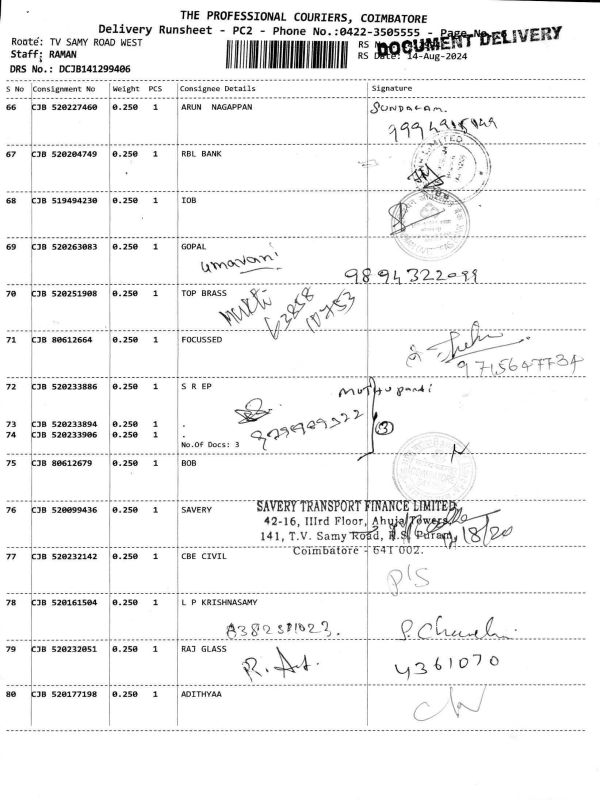 THE PROFESSIONAL COURIERS, COIMBATORE
Delivery Runsheet - PC2 - Phone No.:0422-3505555 - Page No.
DOCUMENT DELIVERY
Route: TV SAMY ROAD WEST
Staff: RAMAN
RS Date: 14-Aug-2024
DRS No.: DCJB141299406
S No Consignment No Weight PCS Consignee Details Signature
66 CJB 520227460 0.250 1 ARUN NAGAPPAN Sundaram.
67 CJB 520204749 0.250 1 RBL BANK
LIMITED
68 CJB 519494230 0.250 1 IOB
69 CJB 520263083 0.250 1 GOPAL
umavani 9894322099
70 CJB 520251908 0.250 1 TOP BRASS
63858
10753
71 CJB 80612664 0.250 1 FOCUSSED
9715647734
72 CJB 520233886 0.250 1 S R EP
Muthupandi
73 CJB 520233894 0.250 1 .
74 CJB 520233906 0.250 1 .
3
No.Of Docs: 3
75 CJB 80612679 0.250 1 BOB
76 CJB 520099436 0.250 1 SAVERY
SAVERY TRANSPORT FINANCE LIMITED,
42-16, IIIrd Floor, Ahuja Towers,
141, T.V. Samy Road, R.S. Puram,
Coimbatore - 641 002.
77 CJB 520232142 0.250 1 CBE CIVIL
P/S
78 CJB 520161504 0.250 1 L P KRISHNASAMY
79 CJB 520232051 0.250 1 RAJ GLASS
4361070
80 CJB 520177198 0.250 1 ADITHYAA